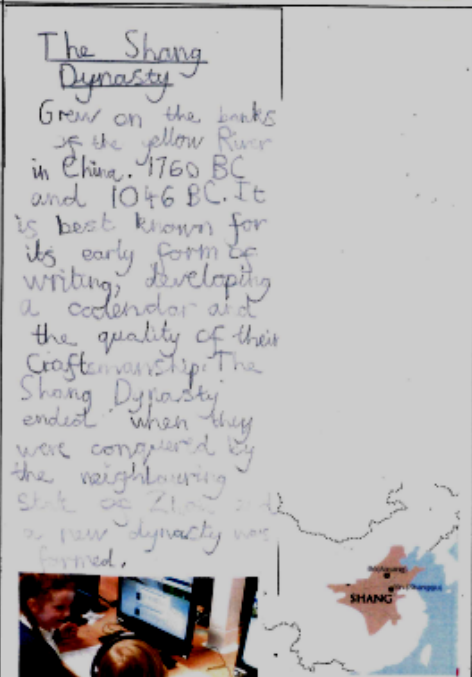 The Shang
Dynasty
Grew on the banks
of the yellow River
in China. 1760 BC
and 1046 BC. It
is best known for
its early form of
writing, developing
a calendar and
the quality of their
Craftsmanship. The
Shang Dynasty
ended when they
were conquered by
the neighbouring
state of Zhou and
a new dynasty was
formed.
SHANG